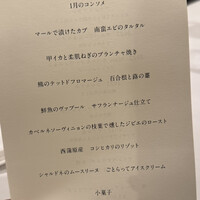 1月のコンソメ
マールで漬けたカブ　南蛮エビのタルタル
甲イカと柔肌ねぎのプランチャ焼き
鱈のナッドドフロマージュ　百合根と蕗の薹
鮮魚のヴァプール　サフランナージュ仕立て
カベルネソーヴィニヨンの枝葉で燻したジビエのロースト
西蒲原産　コシヒカリのリゾット
シャルドネのムースリーヌ　ごとらってアイスクリーム
小菓子